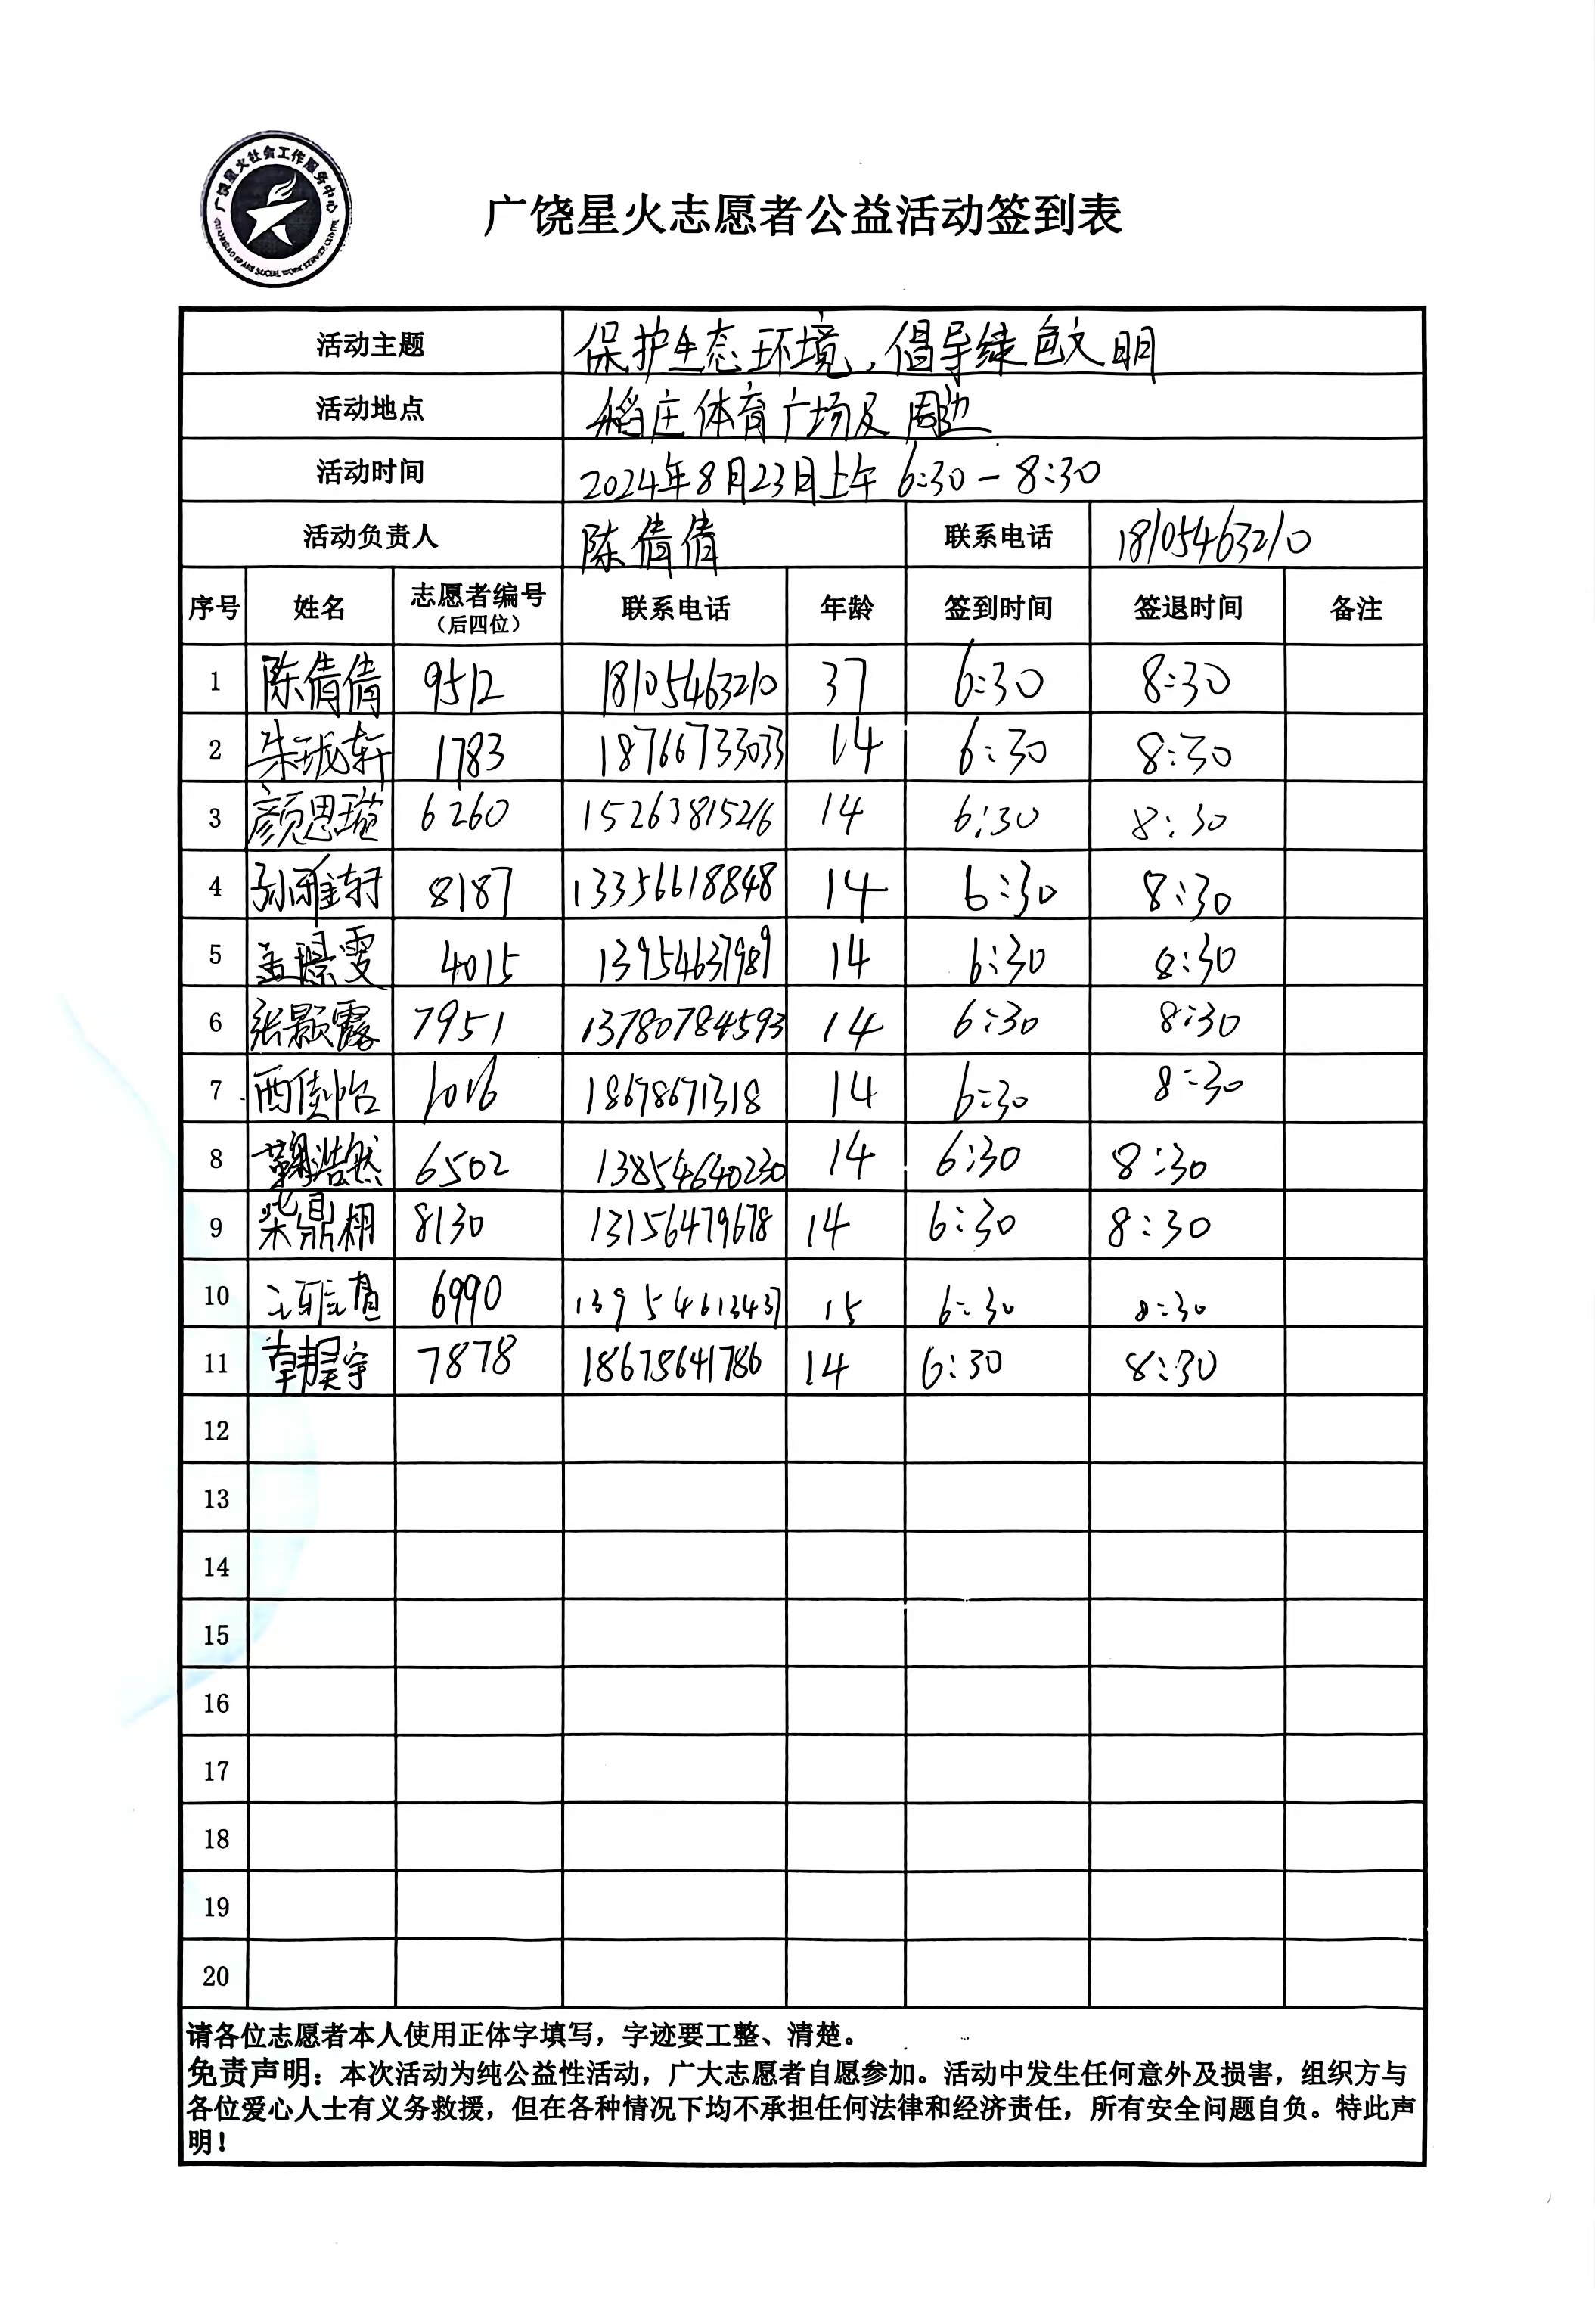 广饶星火社会工作服务中心
GUANGRAO SPARK SOCIAL WORK SERVICE CENTRE
广饶星火志愿者公益活动签到表
活动主题 保护生态环境,倡导绿色文明
活动地点 稻庄体育广场及周边
活动时间 2024年8月23日上午 6:30-8:30
活动负责人 陈倩倩 联系电话 18105463210
序号 姓名 志愿者编号(后四位) 联系电话 年龄 签到时间 签退时间 备注
1 陈倩倩 9512 18105463210 37 6:30 8:30
2 朱珑轩 1783 18766733033 14 6:30 8:30
3 颜思璇 6260 15263815216 14 6:30 8:30
4 孙雅轩 8187 13356618848 14 6:30 8:30
5 孟璟雯 4015 13954637989 14 6:30 8:30
6 张颢露 7951 13780784593 14 6:30 8:30
7 西倩怡 1016 18678671318 14 6:30 8:30
8 鞠浩然 6502 13854640230 14 6:30 8:30
9 梁鼎栩 8130 13156479678 14 6:30 8:30
10 6990 13954613437 15 6:30 8:30
11 韩昊宇 7878 18678641786 14 6:30 8:30
12
13
14
15
16
17
18
19
20
请各位志愿者本人使用正体字填写,字迹要工整、清楚。
免责声明:本次活动为纯公益性活动,广大志愿者自愿参加。活动中发生任何意外及损害,组织方与
各位爱心人士有义务救援,但在各种情况下均不承担任何法律和经济责任,所有安全问题自负。特此声
明!